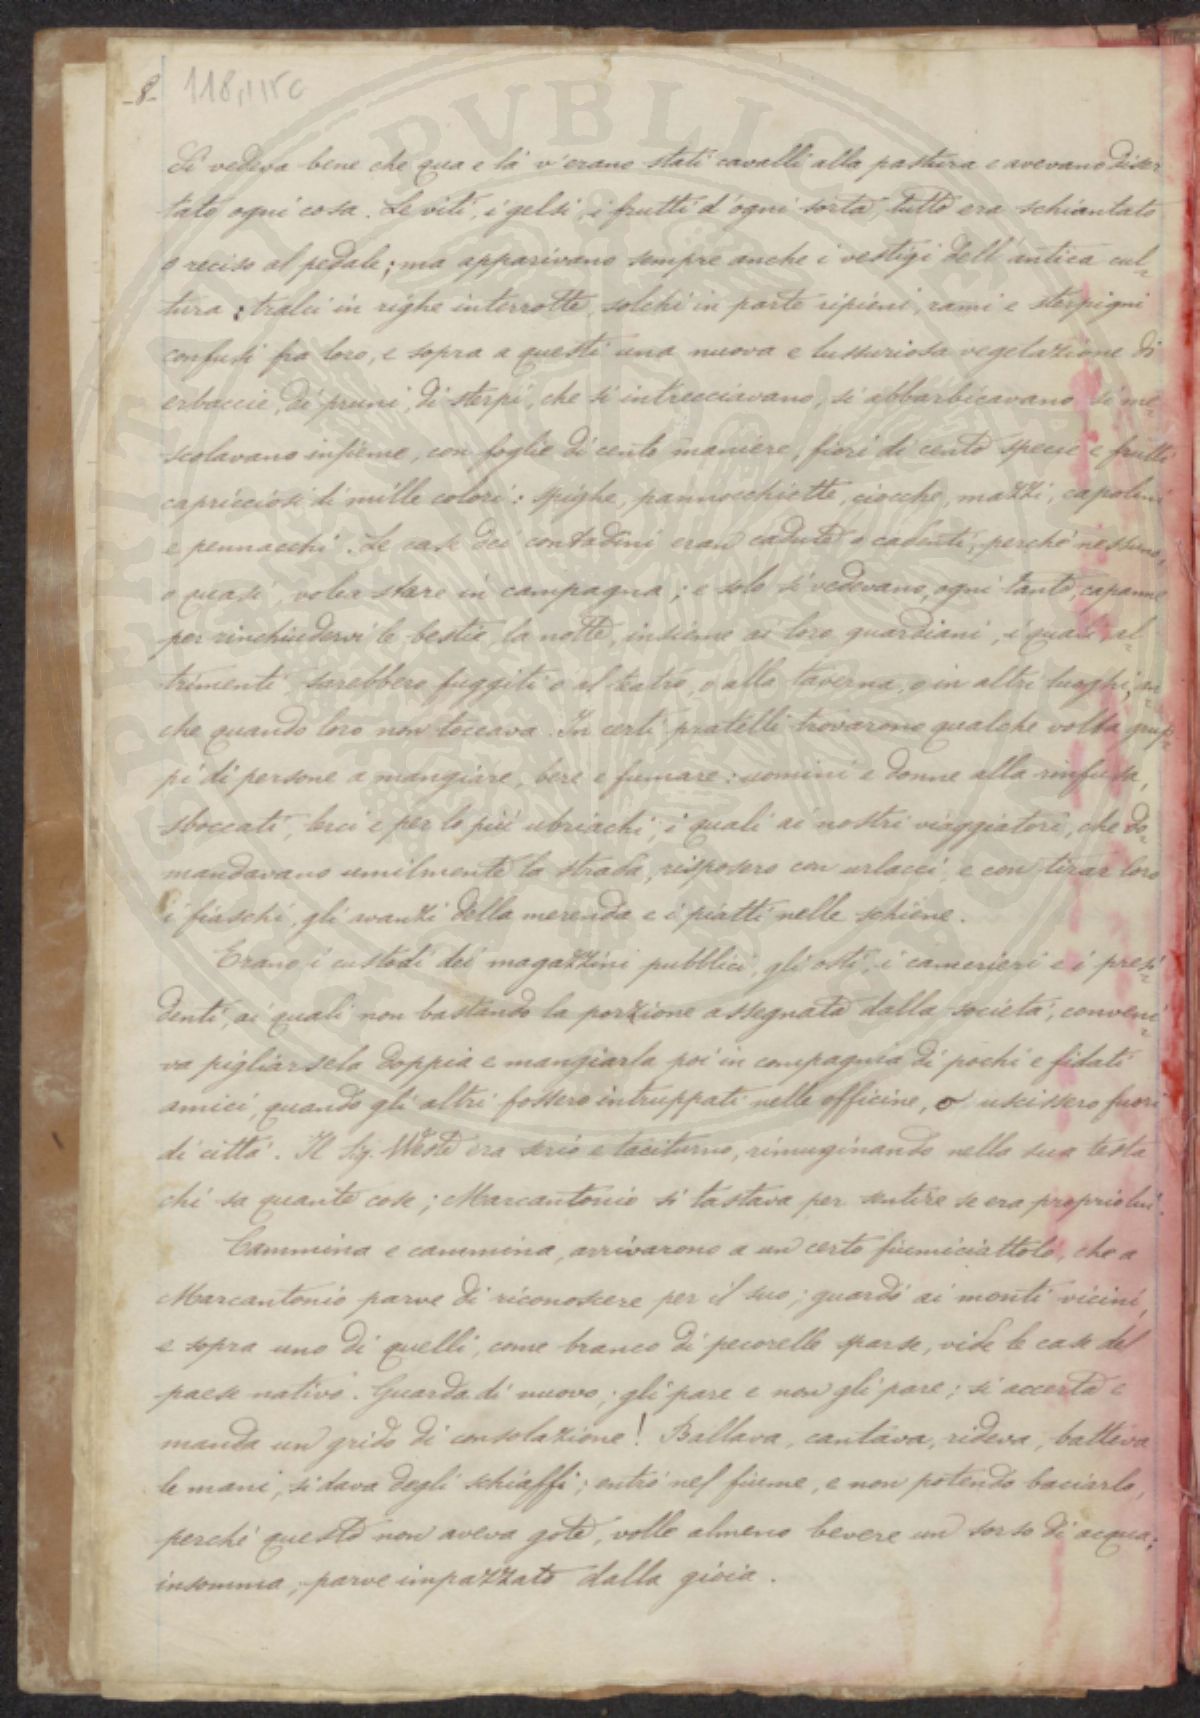 -8- 118,115c
Si vedeva bene che qua e là v'erano stati cavalli alla pastura e avevano diser
tato ogni cosa. Le viti, i gelsi, i frutti d'ogni sorta, tutto era schiantato
o reciso al pedale; ma apparivano sempre anche i vestigi dell'antica cul=
tura: tralci in righe interrotte, solchi in parte ripieni, rami e sterpigni
confusi fra loro, e sopra a questi una nuova e lussuriosa vegetazione di
erbaccie, di pruni, di sterpi, che si intrecciavano, si abbarbicavano si me=
scolavano insieme, con foglie di cento maniere, fiori di cento specie e frutti
capricciosi di mille colori: spighe, pannocchiette, ciocche, mazzi, capolini
e pennacchi. Le case dei contadini eran cadute o cadenti, perché nessuno,
o quasi, voler stare in campagna; e solo si vedevano, ogni tanto, capanne
per rinchiudervi le bestie, la notte, insieme ai loro guardiani, i quali, al=
trimenti, sarebbero fuggiti o al teatro, o alla taverna, o in altri luoghi, an=
che quando loro non toccava. In certi pratelli trovarono qualche volta grup=
pi di persone a mangiare, bere e fumare: uomini e donne alla rinfusa,
sboccati, lerci e per lo più ubriachi, i quali ai nostri viaggiatori, che do=
mandavano umilmente la strada, risposero con urlacci, e con tirar loro
i fiaschi, gli avanzi della merenda e i piatti nelle schiene.
Erano i custodi dei magazzini pubblici, gli osti, i camerieri e i presi=
denti, ai quali non bastando la porzione assegnata dalla società, conveni=
va pigliarsela doppia e mangiarla poi in compagnia di pochi e fidati
amici, quando gli altri fossero intruppati nelle officine, o uscissero fuori
di città. Il Sig. Weste era serio e taciturno, rimuginando nella sua testa
chi sa quante cose; Marcantonio si tastava per sentire se era proprio lui.
Cammina e cammina, arrivarono a un certo fiumiciattolo, che a
Marcantonio parve di riconoscere per il suo; guardò ai monti vicini,
e sopra uno di quelli, come branco di pecorelle sparse, vide le case del
paese nativo. Guarda di nuovo; gli pare e non gli pare; si accerta e
manda un grido di consolazione! Ballava, cantava, rideva, batteva
le mani, si dava degli schiaffi; entrò nel fiume, e non potendo baciarlo,
perché questo non aveva gote, volle almeno bevere un sorso di acqua;
insomma, parve impazzato dalla gioia.